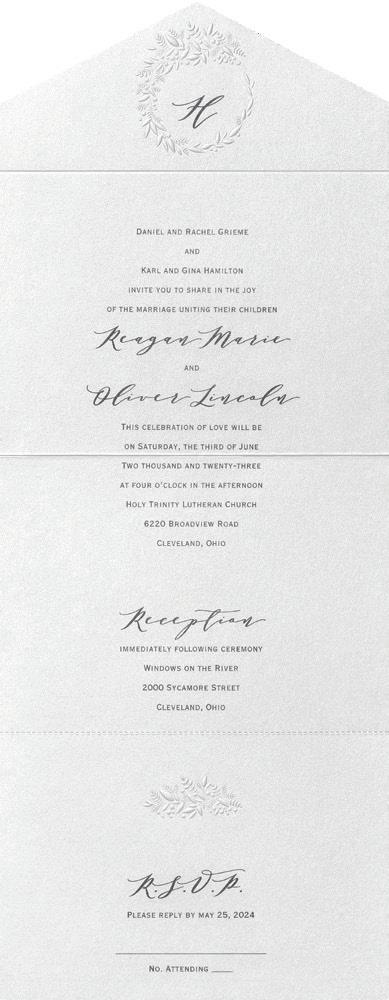 H
Daniel and Rachel Grieme
and
Karl and Gina Hamilton
invite you to share in the joy
of the marriage uniting their children
Reagan Marie
and
Oliver Lincoln
This celebration of love will be
on Saturday, the third of June
Two thousand and twenty-three
at four o'clock in the afternoon
Holy Trinity Lutheran Church
6220 Broadview Road
Cleveland, Ohio
Reception
immediately following ceremony
Windows on the River
2000 Sycamore Street
Cleveland, Ohio
R.S.V.P.
Please reply by may 25, 2024
No. Attending ____